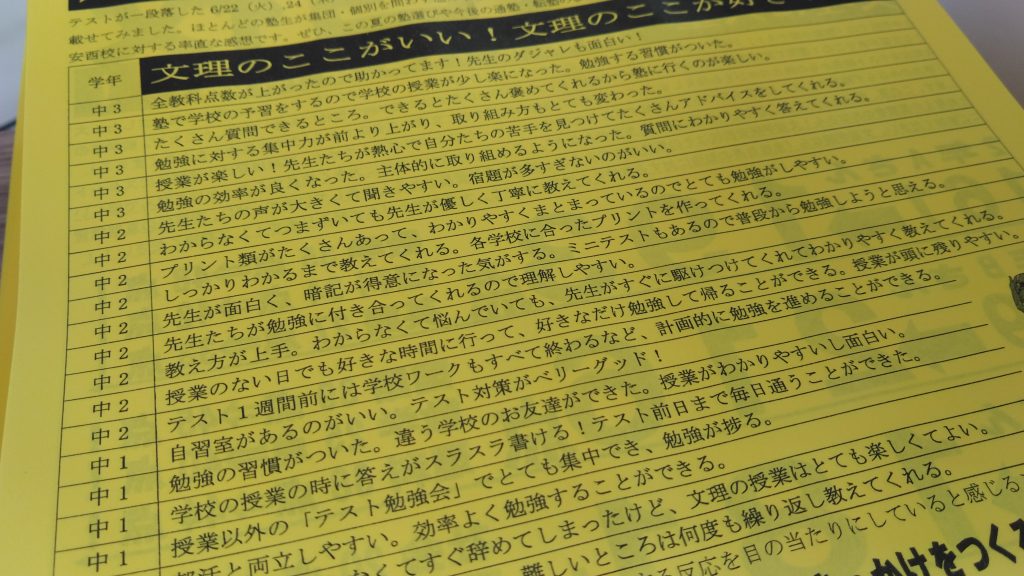 テストが一段落した 6/22 （火）,24（木
載せてみました。ほとんどの塾生が集団・個別を問わず
この夏の塾選びや今後の通塾・転塾の
安西校に対する率直な感想です。ぜひ、
学年 文理のここがいい！文理のここが好き
中３ 全教科点数が上がったので助かってます！先生のダジャレも面白い！
中３ 塾で学校の予習をするので学校の授業が少し楽になった。勉強する習慣がついた。
中３ たくさん質問できるところ。できるとたくさん褒めてくれるから塾に行くのが楽しい。
中３ 勉強に対する集中力が前より上がり、取り組み方もとても変わった。
中３ 授業が楽しい！先生たちが熱心で自分たちの苦手を見つけてたくさんアドバイスをしてくれる。
中３ 勉強の効率が良くなった。主体的に取り組めるようになった。質問にわかりやすく答えてくれる。
中２ 先生たちの声が大きくて聞きやすい。宿題が多すぎないのがいい。
中２ わからなくてつまずいても先生が優しく丁寧に教えてくれる。
中２ プリント類がたくさんあって、わかりやすくまとまっているのでとても勉強がしやすい。
中２ しっかりわかるまで教えてくれる。各学校に合ったプリントを作ってくれる。
中２ 先生が面白く、暗記が得意になった気がする。ミニテストもあるので普段から勉強しようと思える。
中２ 先生たちが勉強に付き合ってくれるので理解しやすい。
中２ 教え方が上手。わからなくて悩んでいても、先生がすぐに駆けつけてくれてわかりやすく教えてくれる。
中２ 授業のない日でも好きな時間に行って、好きなだけ勉強して帰ることができる。授業が頭に残りやすい。
中２ テスト１週間前には学校ワークもすべて終わるなど、計画的に勉強を進めることができる。
中１ 自習室があるのがいい。テスト対策がベリーグッド！
中１ 勉強の習慣がついた。違う学校のお友達ができた。授業がわかりやすいし面白い。
中１ 学校の授業の時に答えがスラスラ書ける！テスト前日まで毎日通うことができた。
中１ 授業以外の「テスト勉強会」でとても集中でき、勉強が捗る。
部活と両立しやすい。効率よく勉強することができる。
なくてすぐ辞めてしまったけど、文理の授業はとても楽しくてよい。
難しいところは何度も繰り返し教えてくれる。
る反応を目の当たりにしていると感じる
かけをつくる